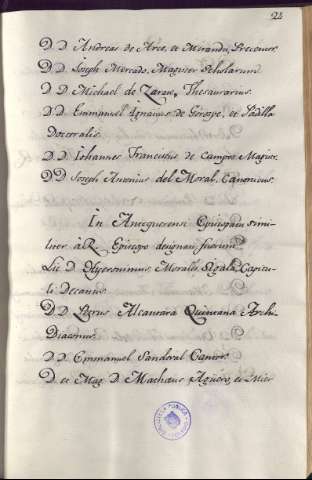 122
D. D. Andreas de Arce, et Miranda, Precentor.
D. D. Joseph Mercado, Magister Scholarum
D. D. Michael de Zarate, Thesaurarius.
D. D. Emmanuel Ignatius de Gorospe, et Padilla
Doctoralis.
D. D. Iohannes Franciscus de Campos Magist.
D. D. Joseph Antonius del Moral, Canonicus.
In Antequerensi Episcopatu simi-
liter à R. Episcopo designati fuerunt
Lic. D. Hyeronimus Morales, Sigala, Capitu-
li Decanus
D. D. Petrus Alcantara Quintana Archi
Diaconus.
D. D. Emmanuel Sandoval Cantor.
D. et Mag. D. Mathaeus Aguero, et Mier
BIBLIOTECA PUBLICA